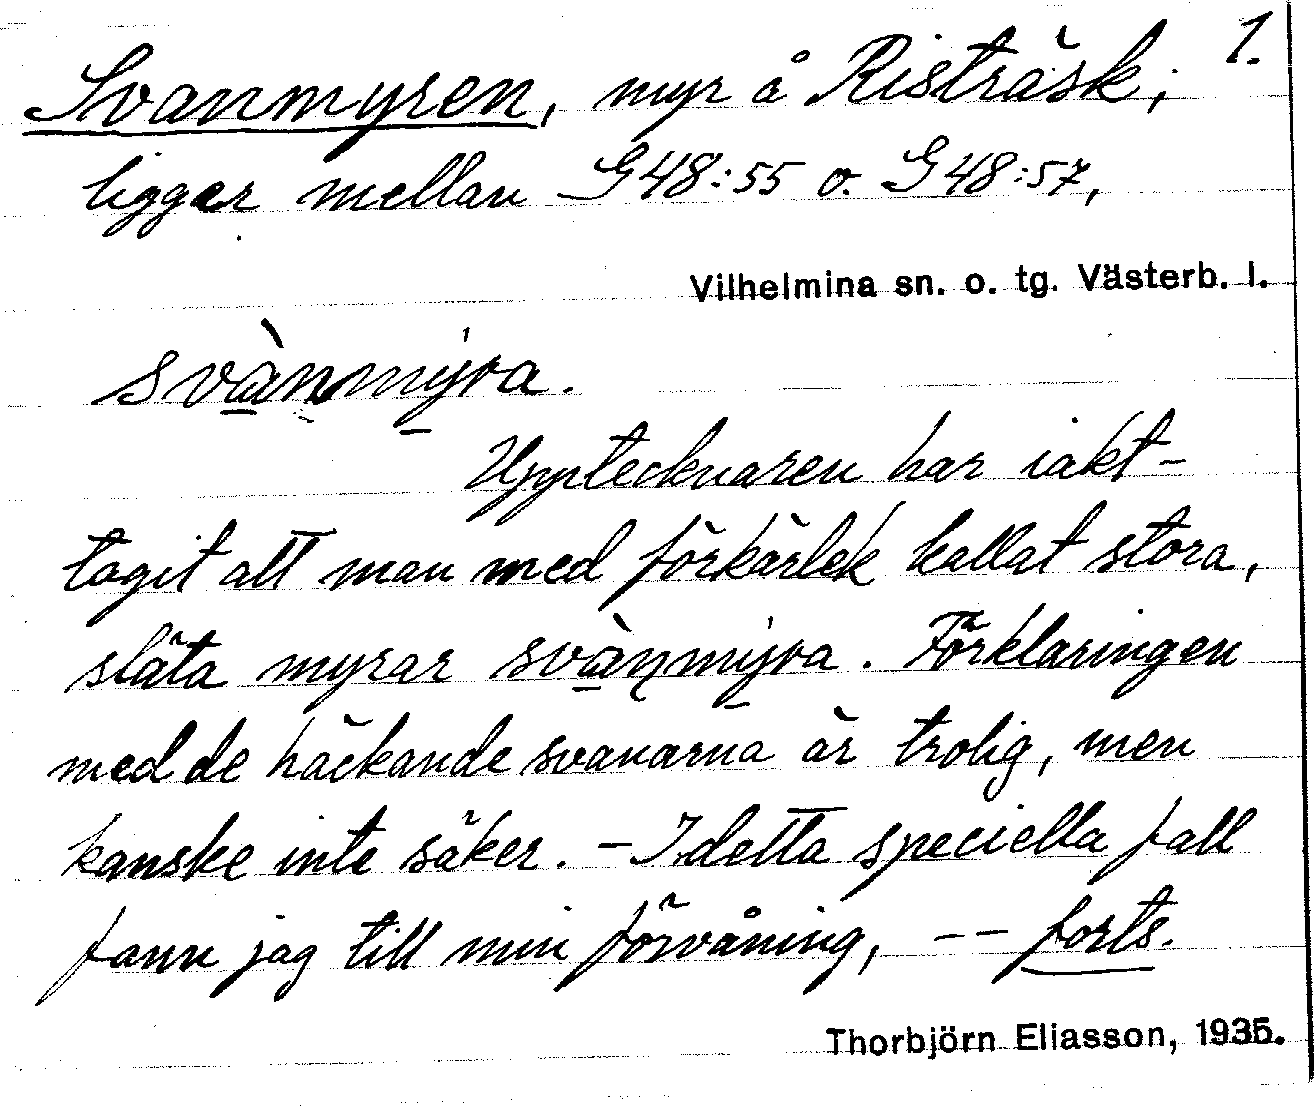 1.
Svanmyren, myr å Risträsk;
ligger mellan G48:55 o. G48:57,
Vilhelmina sn. o. tg. Västerb. l.
svànmýra.
Upptecknaren har iakt-
tagit att man med förkärlek kallat stora,
släta myrar svànmýra. Förklaringen
med de häckande svanarna är trolig, men
kanske inte säker. - I detta speciella fall
fann jag till min förvåning, -- forts.
Thorbjörn Eliasson, 1935.